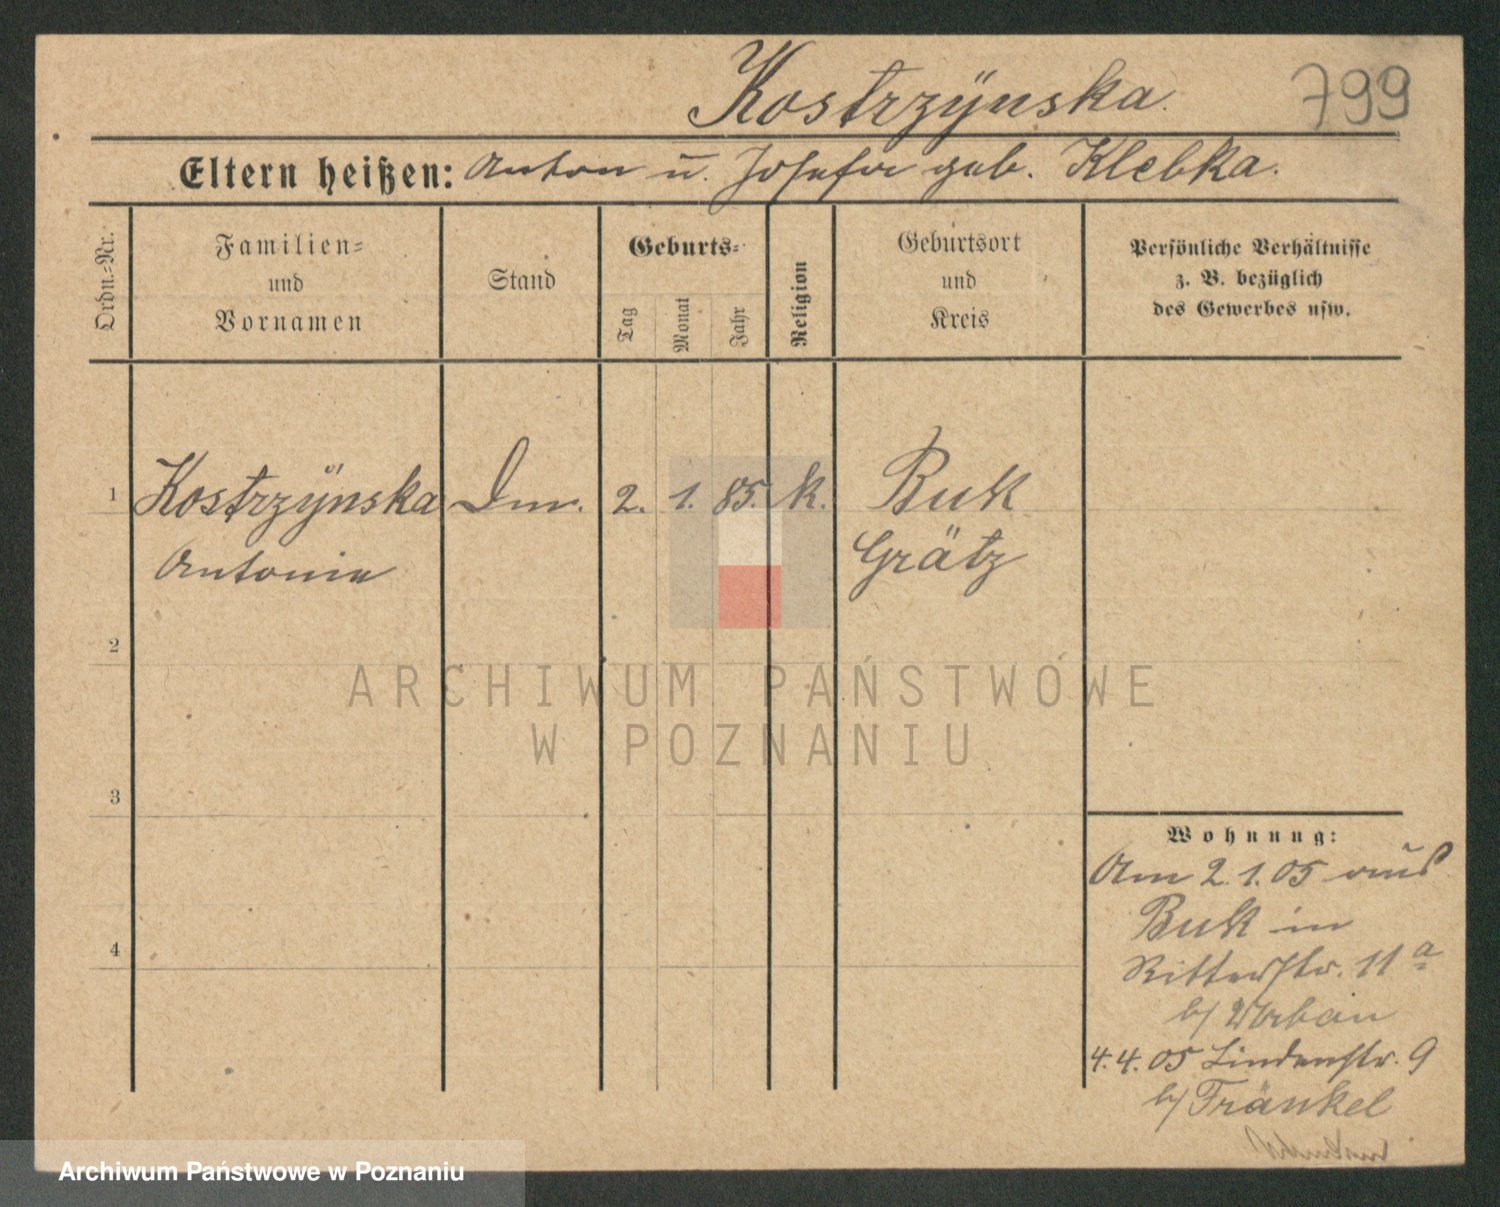 Kostrzÿnska. 799
Eltern heißen: Anton u. Josefa geb. Klebka.
Ordn.=Nr.
Familien=
und
Vornamen
Stand
Geburts=
Tag
Monat
Jahr
Religion
Geburtsort
und
Kreis
Persönliche Verhältnisse
z. B. bezüglich
des Gewerbes usw.
1 Kostrzÿnska 2. 1. 85. k. Buk
Antonie Grätz
2
3
4
Wohnung:
Am 2.1.05 aus
Buk in
Ritterstr. 11a
b/ Urban
4.4.05 Lindenstr. 9
b/ Fränkel
ARCHIWUM PAŃSTWOWE
W POZNANIU
Archiwum Państwowe w Poznaniu